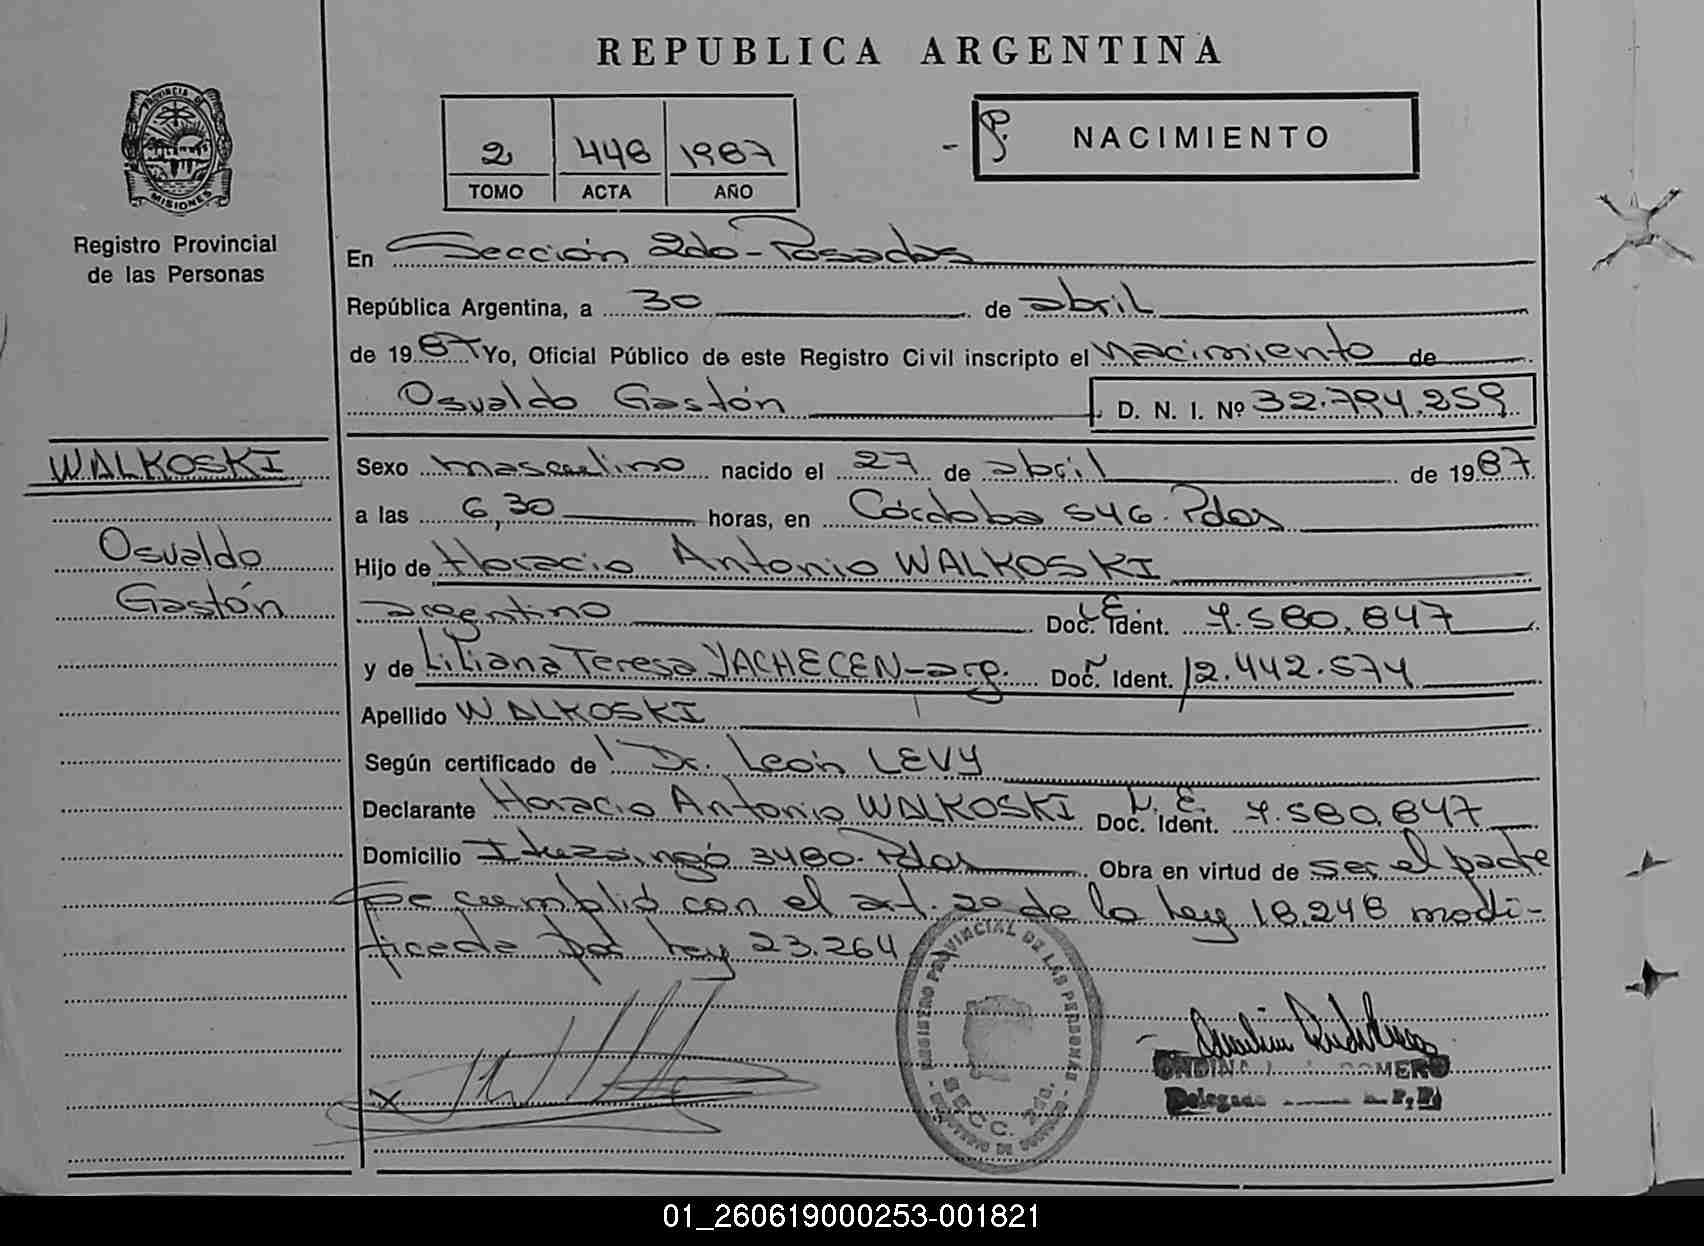 REPUBLICA ARGENTINA
PROVINCIA DE
MISIONES
Registro Provincial
de las Personas
2 448 1987
TOMO ACTA AÑO
NACIMIENTO
En Sección 2do-Posadas
República Argentina, a 30 de abril
de 1987 Yo, Oficial Público de este Registro Civil inscripto el Nacimiento de
Osvaldo Gastón D. N. I. Nº 32.794.259
WALKOSKI
Osvaldo
Gastón
Sexo masculino nacido el 27 de abril de 1987
a las 6,30 horas, en Córdoba 546. Pdas
Hijo de Horacio Antonio WALKOSKI
argentino Doc. Ident. L.E. 7.580.847
y de Liliana Teresa YACHECEN-arg. Doc. Ident. 12.442.574
Apellido WALKOSKI
Según certificado de Dr. León LEVY
Declarante Horacio Antonio WALKOSKI Doc. Ident. L.E. 7.580.847
Domicilio Ituzaingó 3480. Pdas Obra en virtud de ser el padre
Se cumplió con el art. 20 de la ley 18.248 modi-
ficada por ley 23.264
REGISTRO PROVINCIAL DE LAS PERSONAS
SECC. 2da.
ONDINA ROMERO
Delegada
01_260619000253-001821